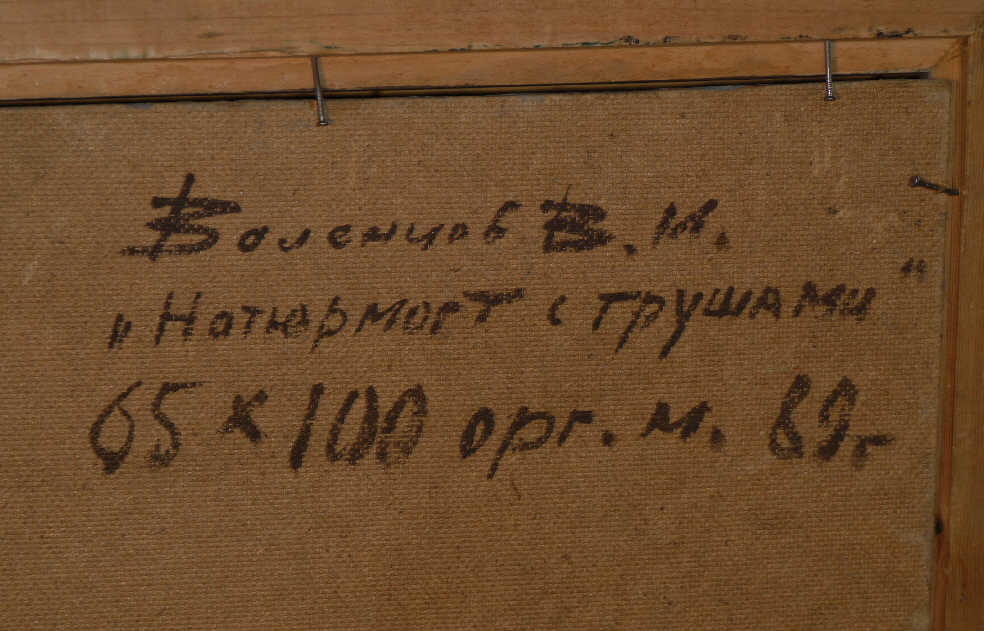 Воленцов В. И.
„Натюрморт с грушами"
65 х 100 орг. м. 89г